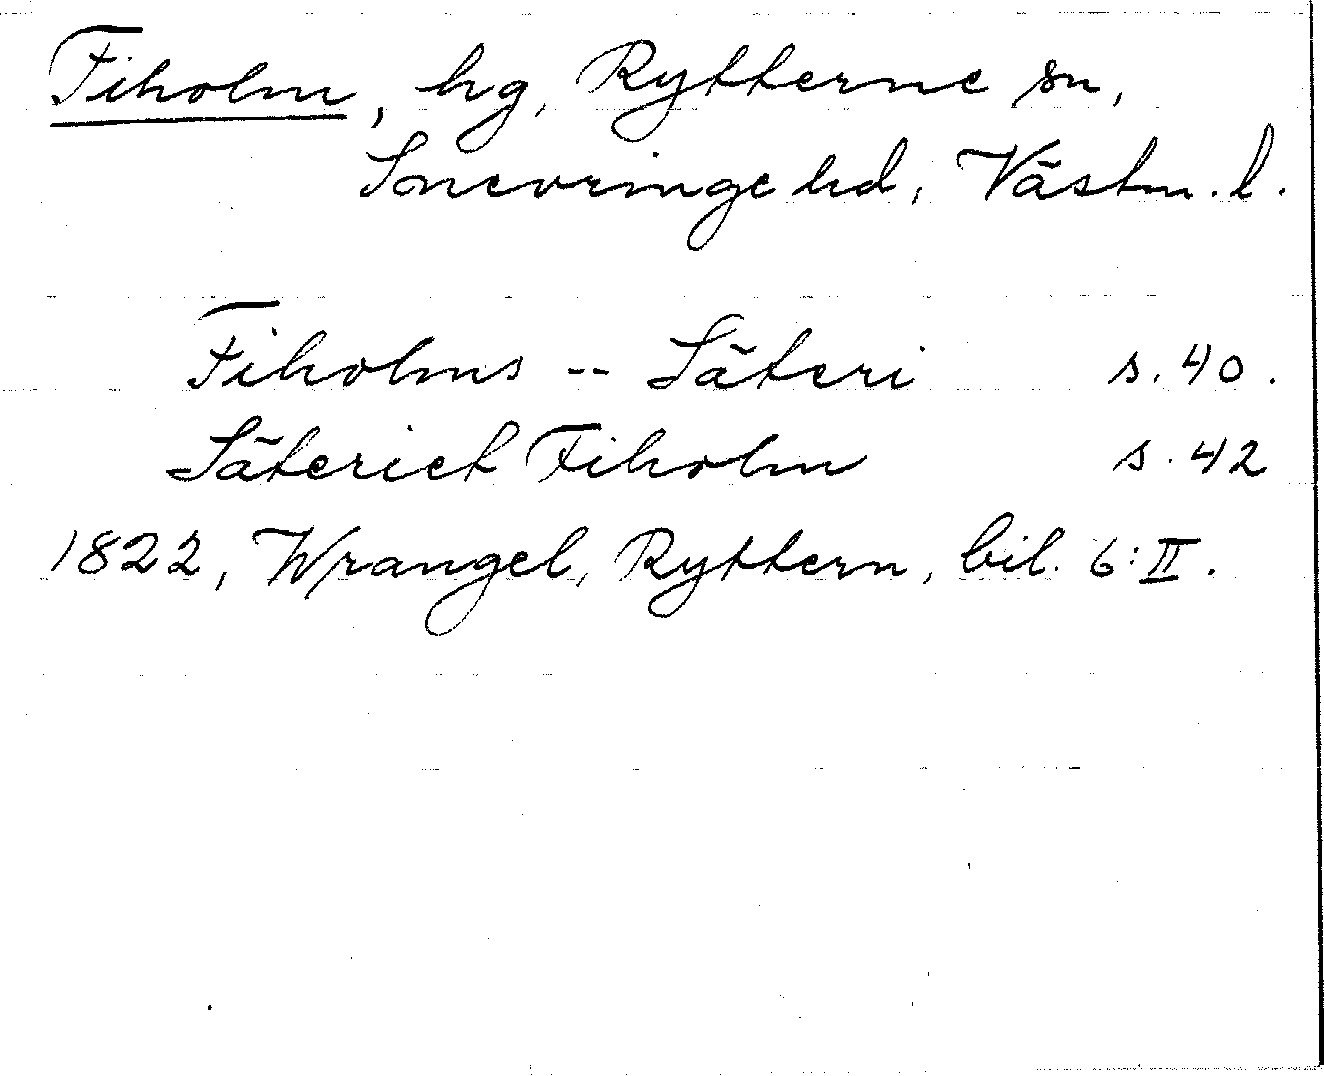 Fiholm, hg, Rytterne sn,
Snevringe hd, Västm. l.
Fiholms -- Säteri s. 40.
Säteriet Fiholm s. 42
1822, Wrangel, Ryttern, bil. 6:II.